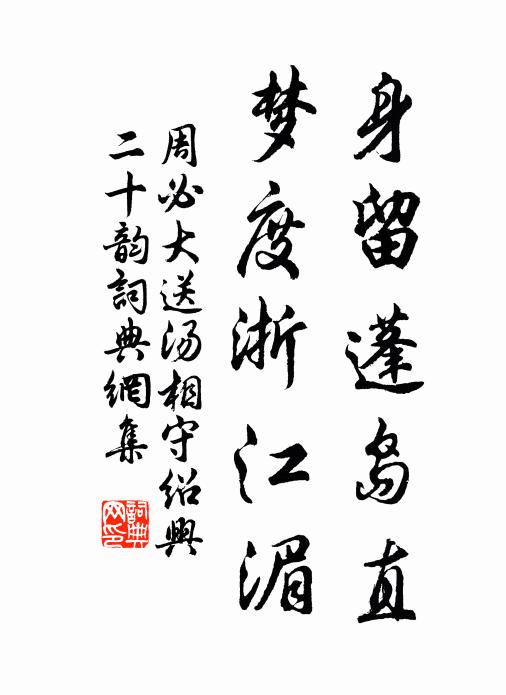 身留蓬岛直
梦度浙江湄
周必大送汤相守绍興
二十韵詞典網集
詞典
网印